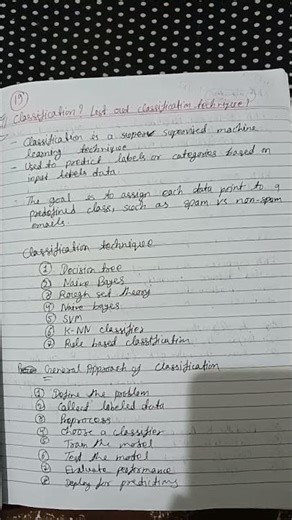 13
Classification? List out classification technique?
- Classification is a supervised machine
learning technique
- Used to predict labels or categories based on
input labels data.
- The goal is to assign each data point to a
predefined class, such as spam vs non-spam
emails.
Classification technique
① Decision tree
② Naive Bayes
③ Rough set theory
④ Naive bayes
⑤ SVM
⑥ K-NN classifier
⑦ Rule based classification
General Approach of Classification
① Define the problem
② Collect labeled data
③ Preprocess
④ Choose a classifier
⑤ Train the model
⑥ Test the model
⑦ Evaluate performance
⑧ Deploy for predictions